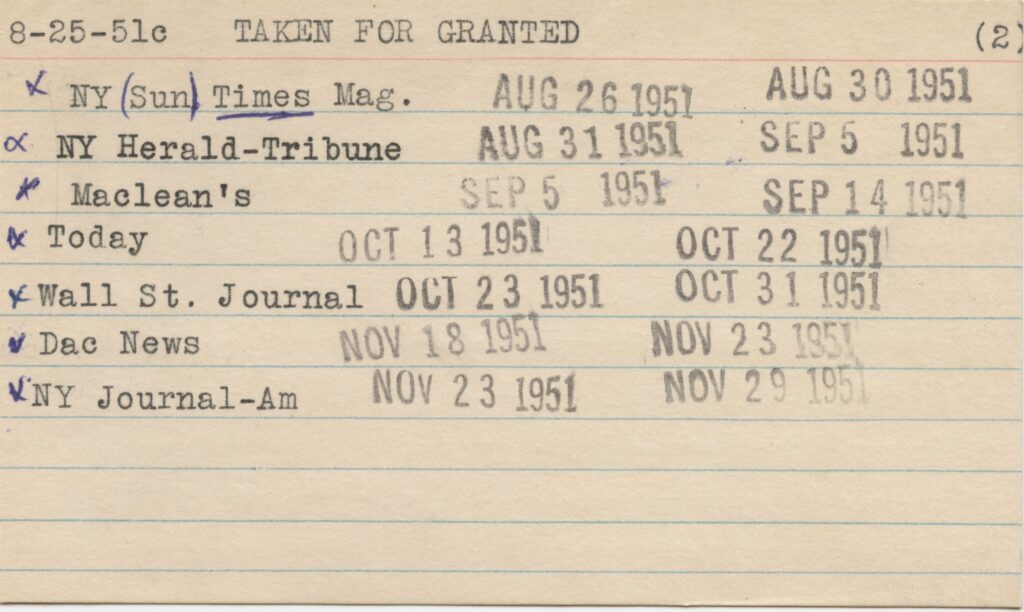 8-25-51c TAKEN FOR GRANTED (2)
NY (Sun) Times Mag. AUG 26 1951 AUG 30 1951
NY Herald-Tribune AUG 31 1951 SEP 5 1951
Maclean's SEP 5 1951 SEP 14 1951
Today OCT 13 1951 OCT 22 1951
Wall St. Journal OCT 23 1951 OCT 31 1951
Dac News NOV 18 1951 NOV 23 1951
NY Journal-Am NOV 23 1951 NOV 29 1951